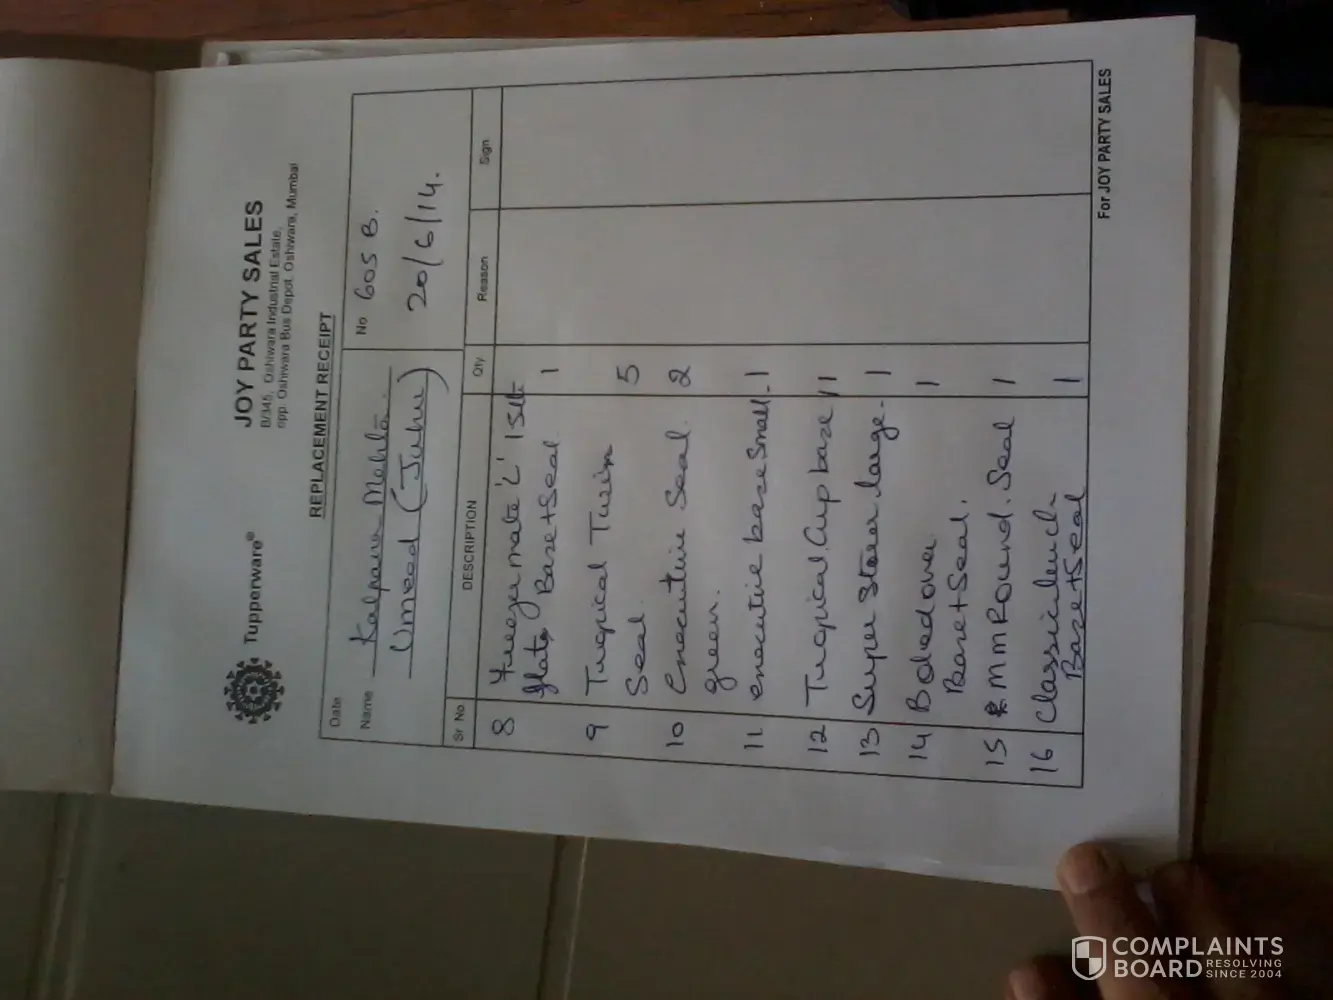 Tupperware®
JOY PARTY SALES
B/345, Oshiwara Industrial Estate,
opp. Oshiwara Bus Depot, Oshiwara, Mumbai
REPLACEMENT RECEIPT
Date
Name Kalpana Mehta
Umeed (Juhu)
No 605 B.
20/6/14.
Sr. No DESCRIPTION Qty Reason Sign
8 Freezermate 'L' Base+Seal 1
9 Tropical Twin 5
Seal.
10 Executive Seal. 2
green.
11 executive base small. 1
12 Tropical Cup base 11
13 Super Storer large. 1
14 Boledover 1
Base+Seal.
15 MM Round. Seal 1
16 Classic lunch 1
Base+Seal
For JOY PARTY SALES
COMPLAINTS
BOARD RESOLVING
SINCE 2004